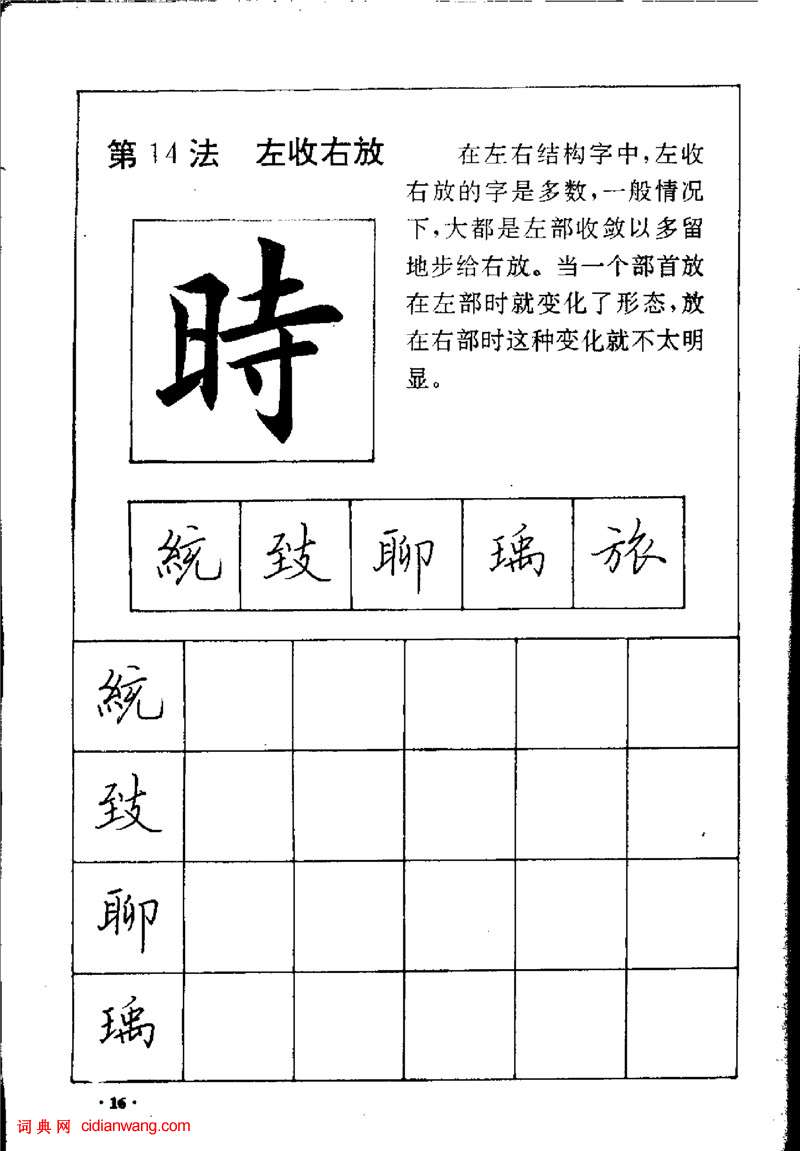 第14法 左收右放
在左右结构字中,左收
右放的字是多数,一般情况
下,大都是左部收敛以多留
地步给右放。当一个部首放
在左部时就变化了形态,放
在右部时这种变化就不太明
显。
時
統 致 聊 瑀 旅
統
致
聊
瑀
·16·
词典网 cidianwang.com